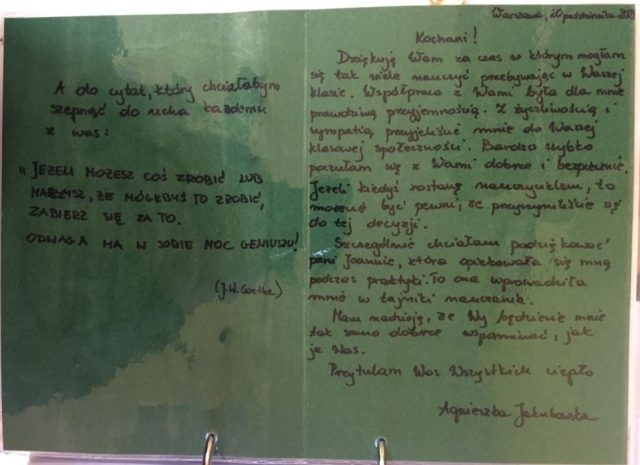 A oto cytat, który chciałabym
szepnąć do ucha każdemu
z was:
"JEŻELI MOŻESZ COŚ ZROBIĆ LUB
MARZYSZ, ŻE MÓGŁBYŚ TO ZROBIĆ,
ZABIERZ SIĘ ZA TO.
ODWAGA MA W SOBIE MOC GENIUSZU!
(J.W. Goethe)
Warszawa, 20 października
Kochani!
Dziękuję Wam za czas w którym mogłam
się tak wiele nauczyć przebywając w Waszej
klasie. Współpraca z Wami była dla mnie
prawdziwą przyjemnością. Z życzliwością i
sympatią przyjeliście mnie do Waszej
klasowej społeczności. Bardzo szybko
poczułam się z Wami dobrze i bezpiecznie.
Jeżeli kiedyś zostanę nauczycielem, to
możecie być pewni, że przyczyniliście się
do tej decyzji.
Szczególnie chciałam podziękować
pani Joannie, która opiekowała się mną
podczas praktyki. To ona wprowadziła
mnie w tajniki nauczania.
Mam nadzieję, że Wy będziecie mnie
tak samo dobrze wspominać, jak
ja Was.
Przytulam Was Wszystkich ciepło
Agnieszka Jakubowska